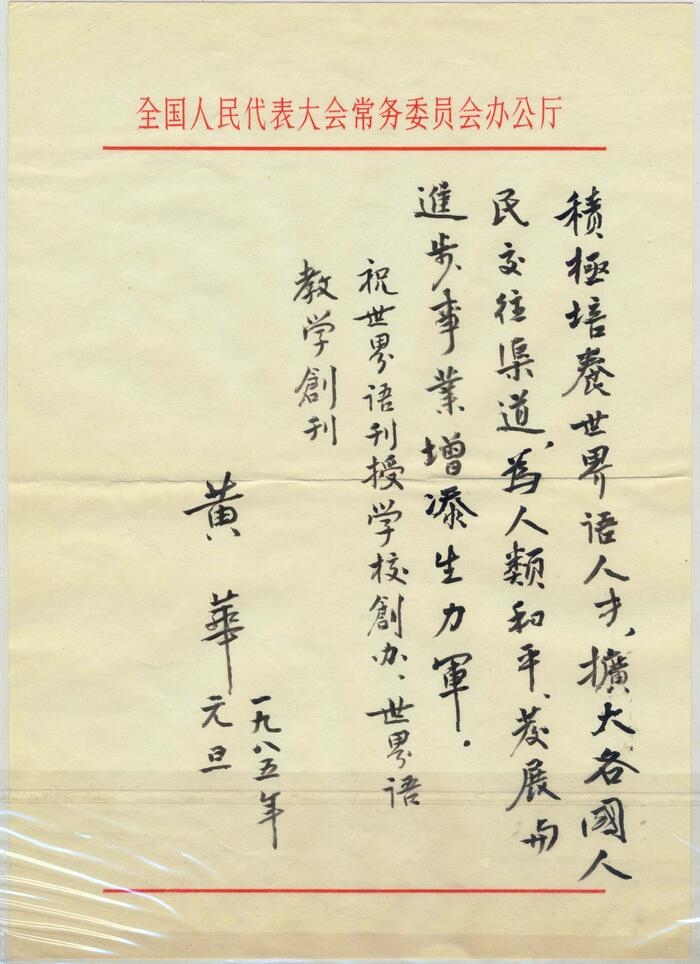 全国人民代表大会常务委员会办公厅
積極培養世界语人才、擴大各國人
民交往渠道、為人類和平、发展与
進步事業增添生力軍.
祝世界语刊授学校創办、世界语
教学創刊
黄華
一九八五年
元旦